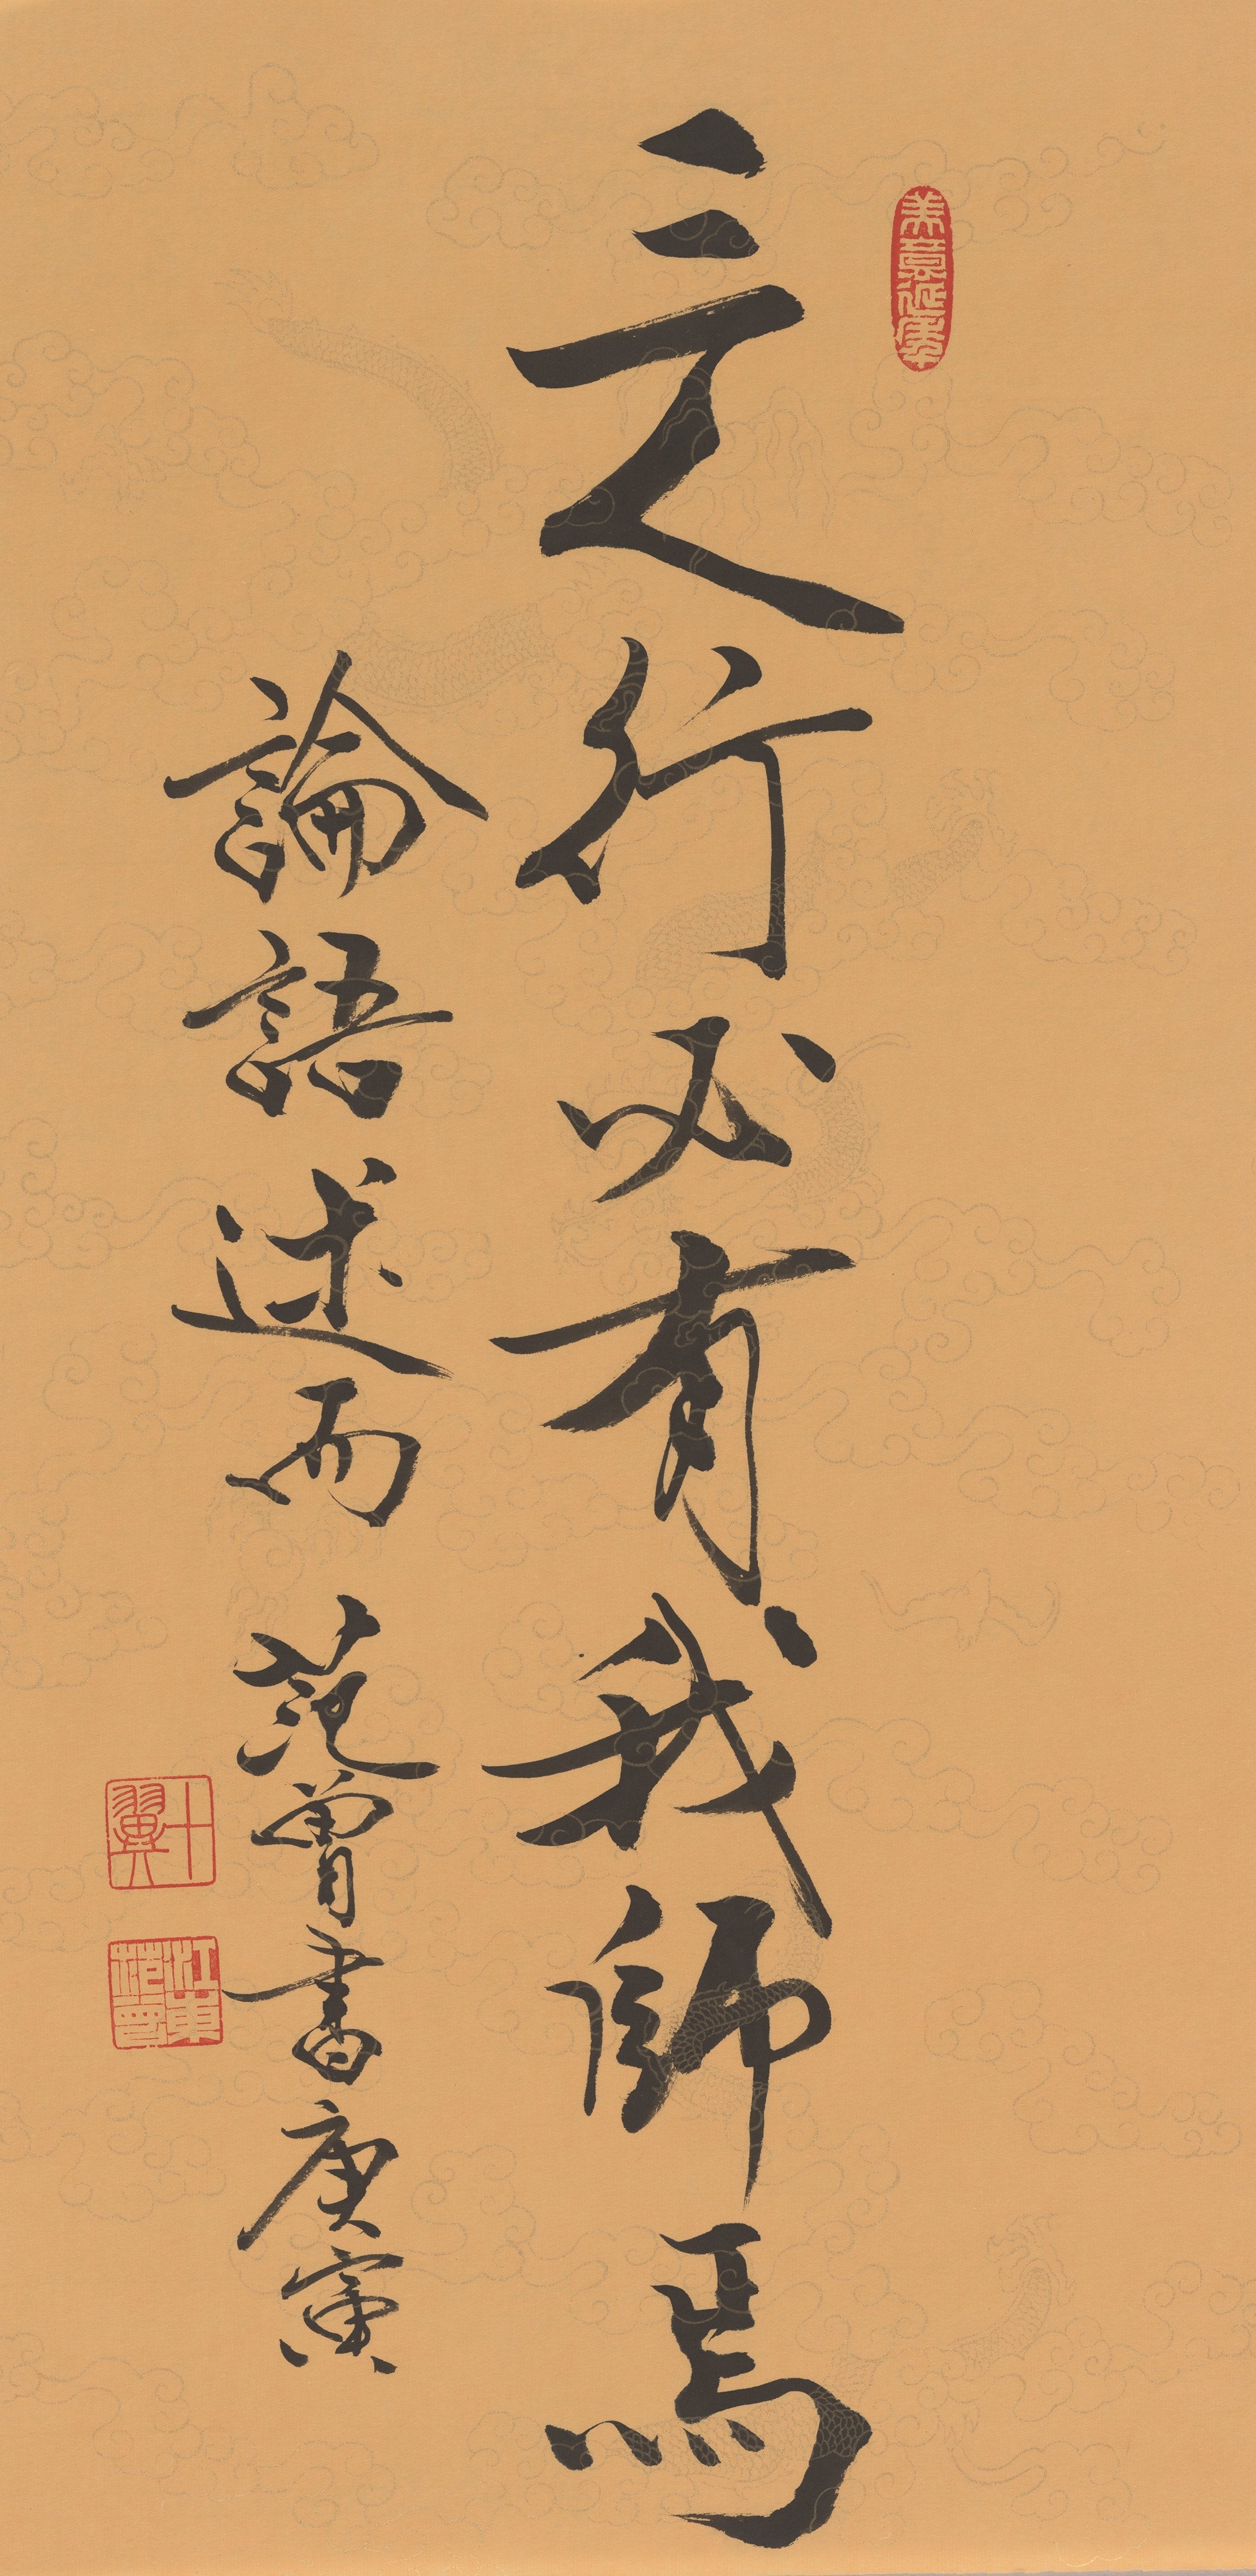 美意延年
三人行必有我師焉
論語述而 范曾書庚寅
十翼
江東范曾